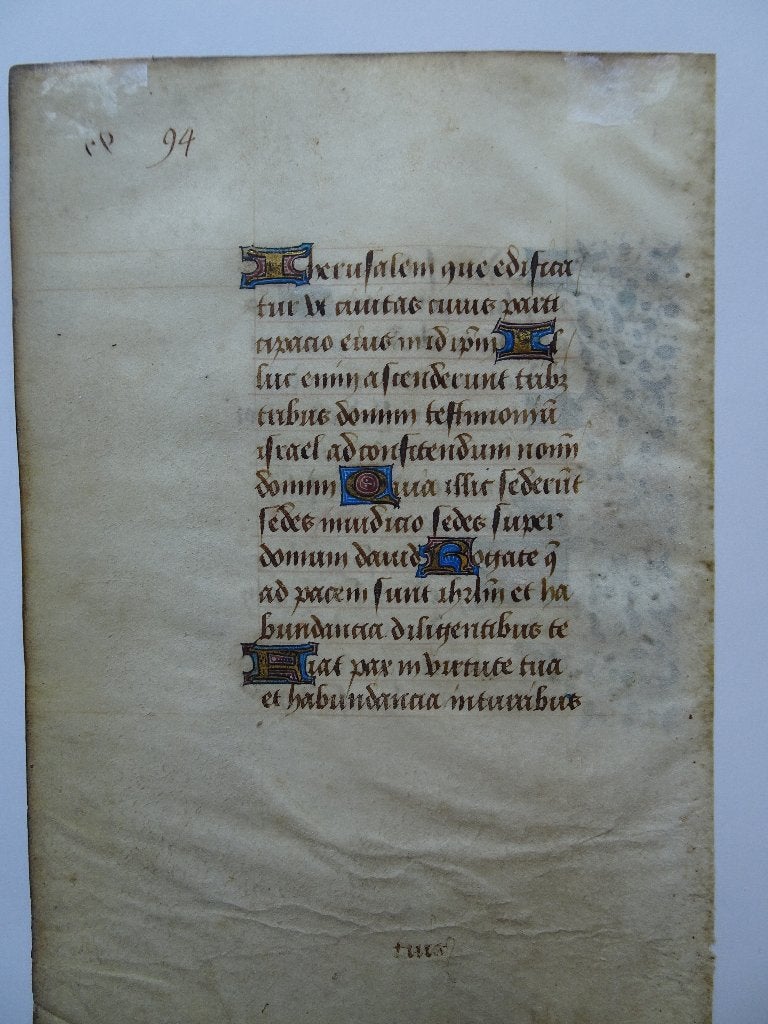 94
Iherusalem que edifica
tur vt ciuitas cuius parti
cipacio eius in idipm Il
luc enim ascenderunt tribꝫ
tribus domini testimoniū
israel ad confitendum nomī
domini Quia illic sederūt
sedes in iudicio sedes super
domum dauid Rogate q̄
ad pacem sunt ihrlm̄ et ha
bundancia diligentibus te
Fiat pax in virtute tua
et habundancia in turribus
tuis